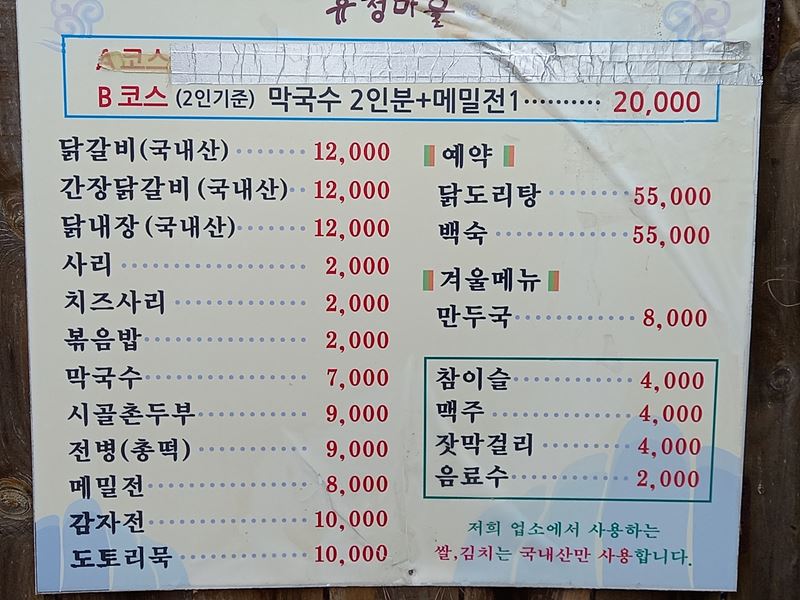 유정마을
A 코스
B 코스 (2인기준) 막국수 2인분+메밀전1 ·········· 20,000
닭갈비(국내산) ······· 12,000
간장닭갈비 (국내산) ·· 12,000
닭내장 (국내산) ······· 12,000
사리 ·················· 2,000
치즈사리 ············· 2,000
볶음밥 ··············· 2,000
막국수 ··············· 7,000
시골촌두부 ··········· 9,000
전병(총떡) ··········· 9,000
메밀전 ··············· 8,000
감자전 ··············· 10,000
도토리묵 ············· 10,000
예약
닭도리탕 ········· 55,000
백숙 ·············· 55,000
겨울메뉴
만두국 ············ 8,000
참이슬 ············ 4,000
맥주 ·············· 4,000
잣막걸리 ·········· 4,000
음료수 ············ 2,000
저희 업소에서 사용하는
쌀,김치는 국내산만 사용합니다.